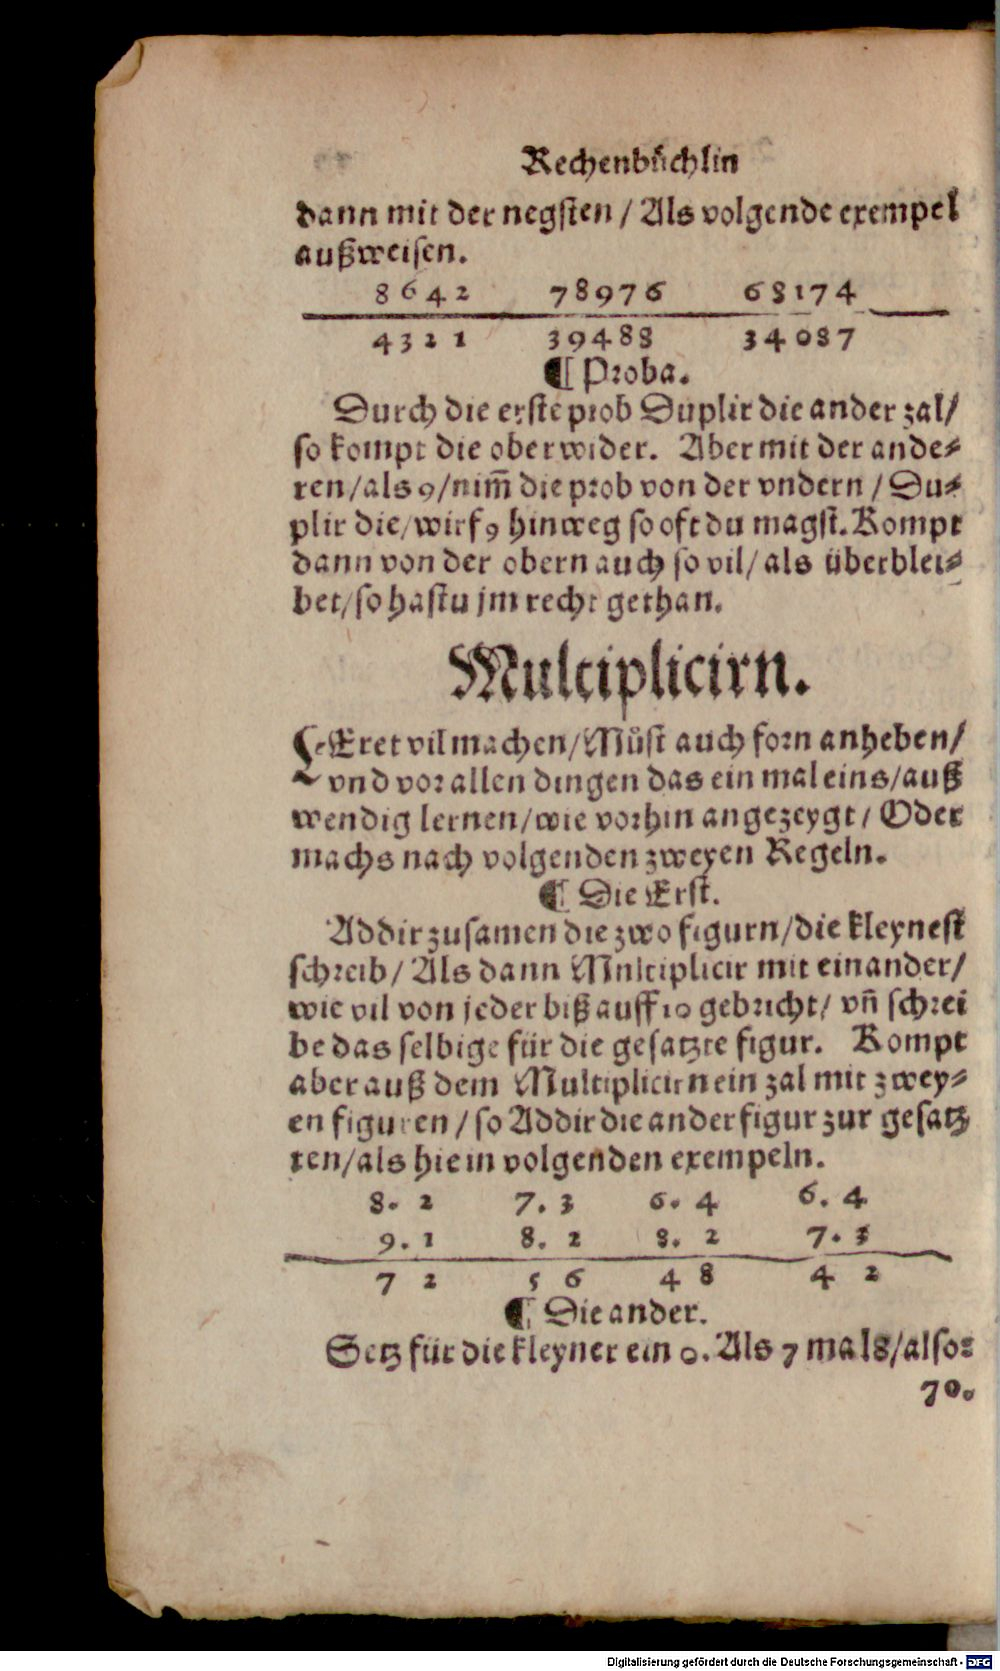 Rechenbuͤchlin
dann mit der negsten / Als volgende exempel
außweisen.
8642 78976 68174
4321 39488 34087
¶ Proba.
Durch die erste prob Duplir die ander zal/
so kompt die ober wider. Aber mit der ande⸗
ren/als 9/nim̃ die prob von der vndern / Du⸗
plir die/wirf 9 hinweg so oft du magst. Kompt
dann von der obern auch so vil/ als überblei⸗
bet/so hastu jm recht gethan.
Multiplicirn.
LEret vil machen/Muͤst auch forn anheben/
vnd vor allen dingen das ein mal eins/auß
wendig lernen/wie vorhin angezeygt / Oder
machs nach volgenden zweyen Regeln.
¶ Die Erst.
Addir zusamen die zwo figurn/die kleynest
schreib/ Als dann Mnltiplicir mit einander/
wie vil von jeder biß auff 10 gebricht/ vñ schrei
be das selbige für die gesatzte figur. Kompt
aber auß dem Multiplicirn ein zal mit zwey⸗
en figuren / so Addir die ander figur zur gesatz
ten/als hie in volgenden exempeln.
8. 2 7. 3 6. 4 6. 4
9. 1 8. 2 8. 2 7. 3
7 2 5 6 4 8 4 2
¶ Die ander.
Setz für die kleyner ein 0. Als 7 mal 8/also:
70.
Digitalisierung gefördert durch die Deutsche Forschungsgemeinschaft - DFG